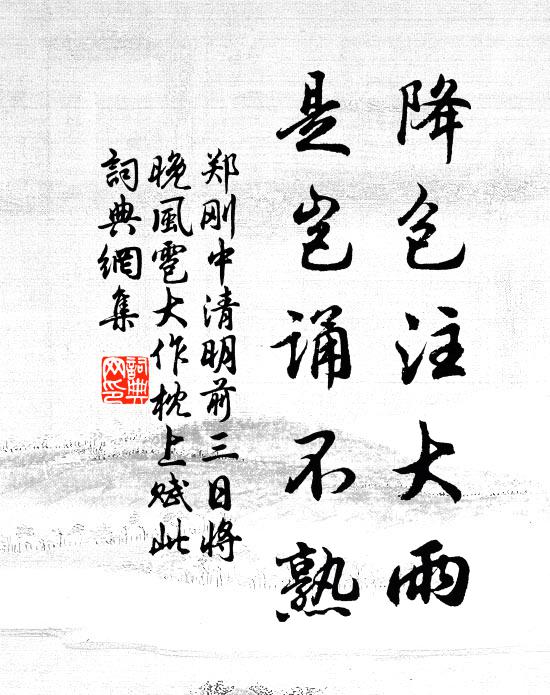 降包注大雨
是岂诵不熟
郑刚中清明前三日将
晚风雹大作枕上赋此
詞典網集
詞典网印